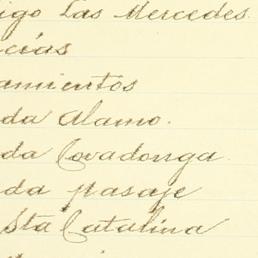 igo Las Mercedes.
cias
amientos
da Alamo.
da Covadonga.
da pasaje
Sta Catalina